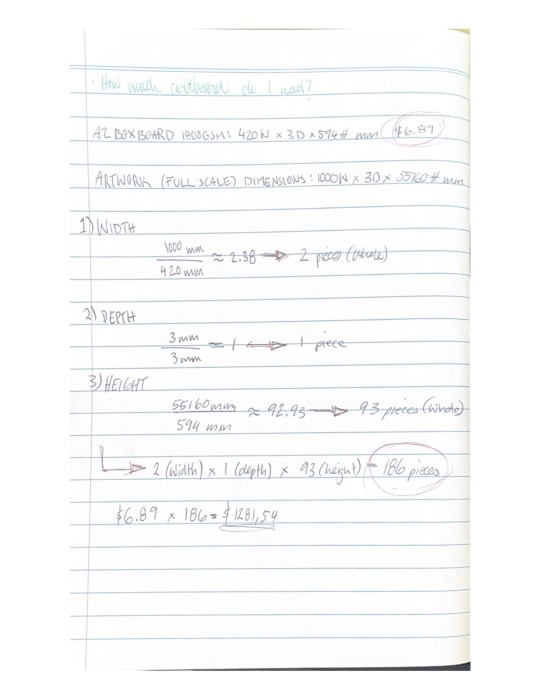 · How much cardboard do I need?
A2 BOXBOARD 1800GSM: 420W x 3D x 594H mm $6.89
ARTWORK (FULL SCALE) DIMENSIONS: 1000W x 3D x 55160H mm
1) WIDTH
1000 mm
420 mm
≈ 2.38 → 2 pieces (whole)
2) DEPTH
3mm
3mm
= 1 → 1 piece
3) HEIGHT
55160mm
594 mm
≈ 92.93 → 93 pieces (whole)
2 (width) x 1 (depth) x 93 (height) = 186 pieces
$6.89 x 186 = $1281,54